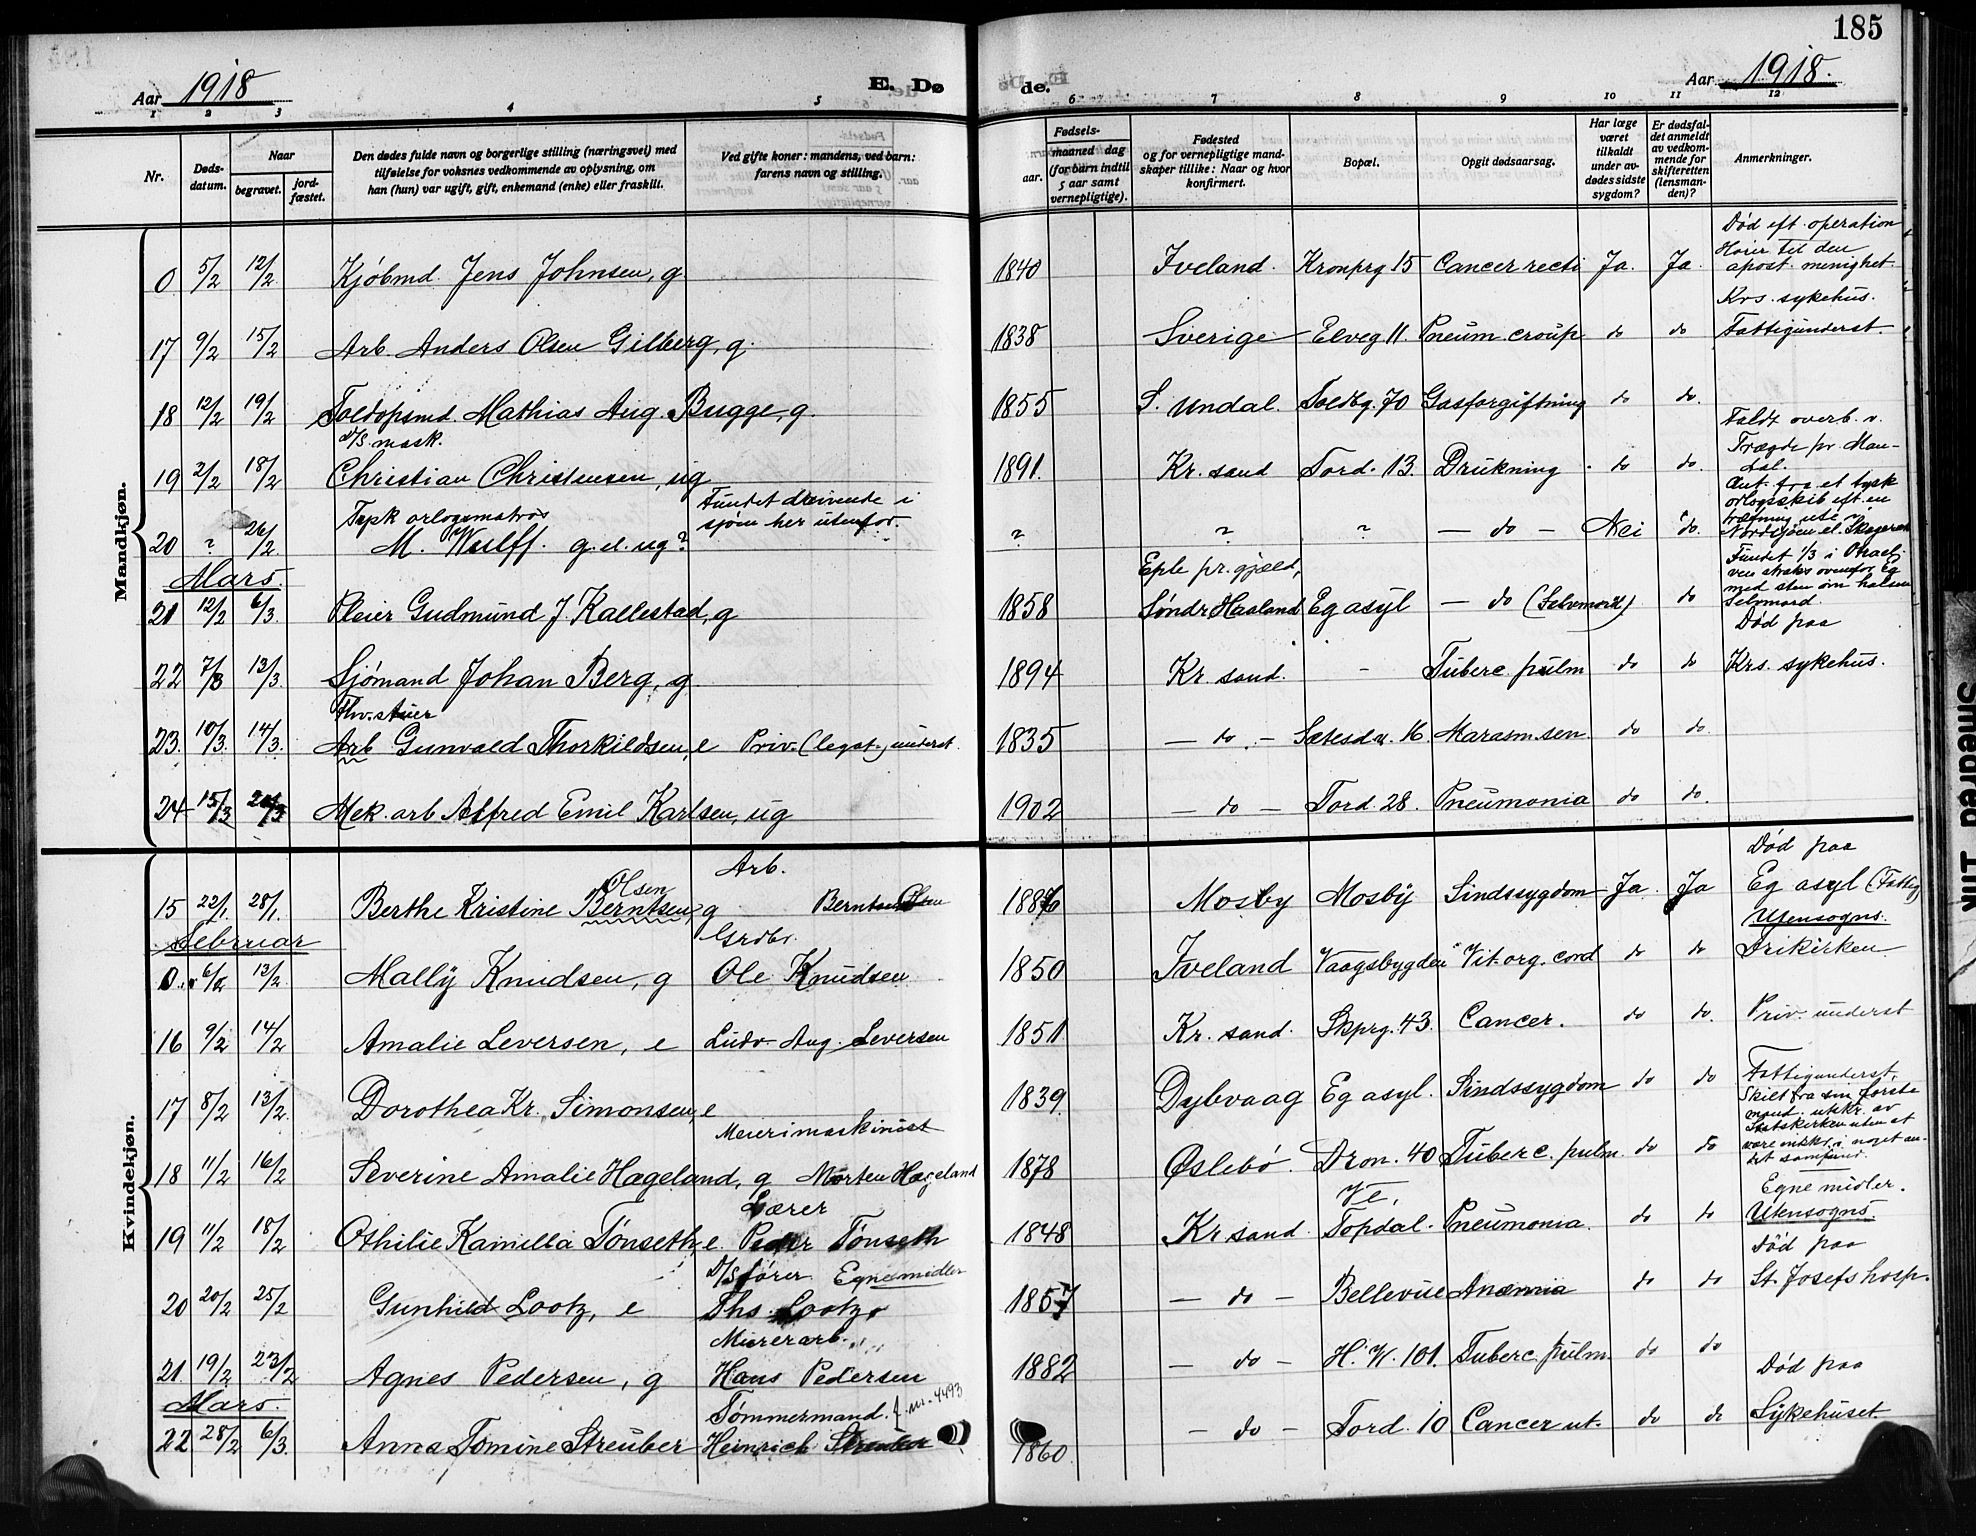 185
Aar 1918 E. Dø de. Aar 1918.
1 2 3 4 5 6 7 8 9 10 11 12
Nr. Døds-datum. Naar begravet. jord-fæstet. Den dødes fulde navn og borgerlige stilling (næringsvei) med tilføielse for voksnes vedkommende av oplysning, om han (hun) var ugift, gift, enkemand (enke) eller fraskilt. Ved gifte koner: mandens, ved barn: farens navn og stilling. Fødsels- aar. maaned dag (for barn indtil 5 aar samt vernepligtige). Fødested og for vernepligtige mand-skaper tillike: Naar og hvor konfirmert. Bopæl. Opgit dødsaarsag. Har læge været tilkaldt under av-dødes sidste sygdom? Er dødsfal-det anmeldt av vedkom-mende for skifteretten (lensman-den)? Anmerkninger.
Mandkjøn.
0 5/2 12/2 Kjøbmd. Jens Johnsen, g 1840 Iveland. Kronprg 15 Cancer recti Ja. Ja. Død eft. operation Hører til den apost. menighet.
17 9/2 15/2 Arb. Anders Olsen Gilberg, g. 1838 Sverige Elveg 11. Pneum. croup do do Krs. sykehus. Fattigunderst.
18 12/2 19/2 Toldopsmd. Mathias Aug. Bugge, g. 1855 S. Undal. Toldbg. 70 Gasforgiftning do do.
19 2/2 18/2 D/S mask. Christian Christensen, ug 1891. Kr. sand Tord. 13. Drukning do do. Faldt overb. v. Trægde pr. Man-dal.
20 ? 26/2 Tysk orlogsmatros M. Wulff. g. el. ug? Fundet drivende i sjøen her utenfor. ? ? ? — do — Nei do. Ant. fra et tysk orlogsskib eft. en træfning ute i Nordsjøen el. Skagerak
Mars.
21 12/2 6/3 Pleier Gudmund J. Kallestad, g 1858 Eple pr. gjeld, Søndr Haaland Eg asyl — do (Selvmord) do Fundet 1/3 i Otraelven straks ovenfor Eg med sten om halsen Selvmord.
22 7/3 13/3. Sjømand Johan Berg, g. 1894 Kr. sand. - Tuberc. pulm do do Død paa Krs. sykehus.
23. 10/3. 14/3. Fhv. stuer Arb Gunvald Thorkildsen, e Priv. (legat.) underst. 1835 — do. — Sætesd. v. 16. Marasm. sen. do do.
24 15/3 Mek. arb Alfred Emil Karlsen, ug 1902 — do — Tord. 28. Pneumonia do do.
Kvindekjøn.
15 22/1. 28/1. Berthe Kristine Berntsen, Olsen g Arb. Berntsen Olsen Mosby Mosby Sindssygdom Ja. Ja Død paa Eg asyl (Fattig Utensogns.
Februar
0. 6/2 12/2. Mally Knudsen, g Grdbr. Ole Knudsen 1850 Iveland Vaagsbygden Vit. org. cord do do Frikirken
16 9/2 14/2 Amalie Leversen, e Ludv. Aug. Leversen 1851 Kr. sand. Skprg. 43. Cancer. do do. Priv. underst
17 8/2 13/2. Dorothea Kr. Simonsen, e 1839 Dybvaag Eg asyl. Sindssygdom do do Fattigunderst.
18 11/2 16/2 Severine Amalie Hageland, g Meierimaskinist Morten Hageland 1878 Øslebø. Dron. 40 Tuberc. pulm. do do Skilt fra sin første mand. utskr. av Statskirken uten at være indskr. i noget an-det samfund.
19 11/2 18/2 Othilie Kamilla Tønseth, e. Lærer Peder Tønseth 1848 Kr sand Ve, Topdal. Pneumonia. do do Egne midler. Utensogns.
20 20/2 25/2 Gunhild Lootz, e D/S fører Egne midler Ths. Lootz 1857 — do — Bellevue Anæmia do do Død paa St. Josefs hosp.
21. 19/2 23/2 Agnes Pedersen, g Murerarb. Hans Pedersen 1882 — do — H. W. 101. Tuberc. pulm. do do
Mars.
22 28/2 6/3. Anna Tomine Streuber Tømmermand. f. nr. 4493 Heinrich Streuber 1860. — do — Tord. 10 Cancer ut. do do Død paa Sykehuset.